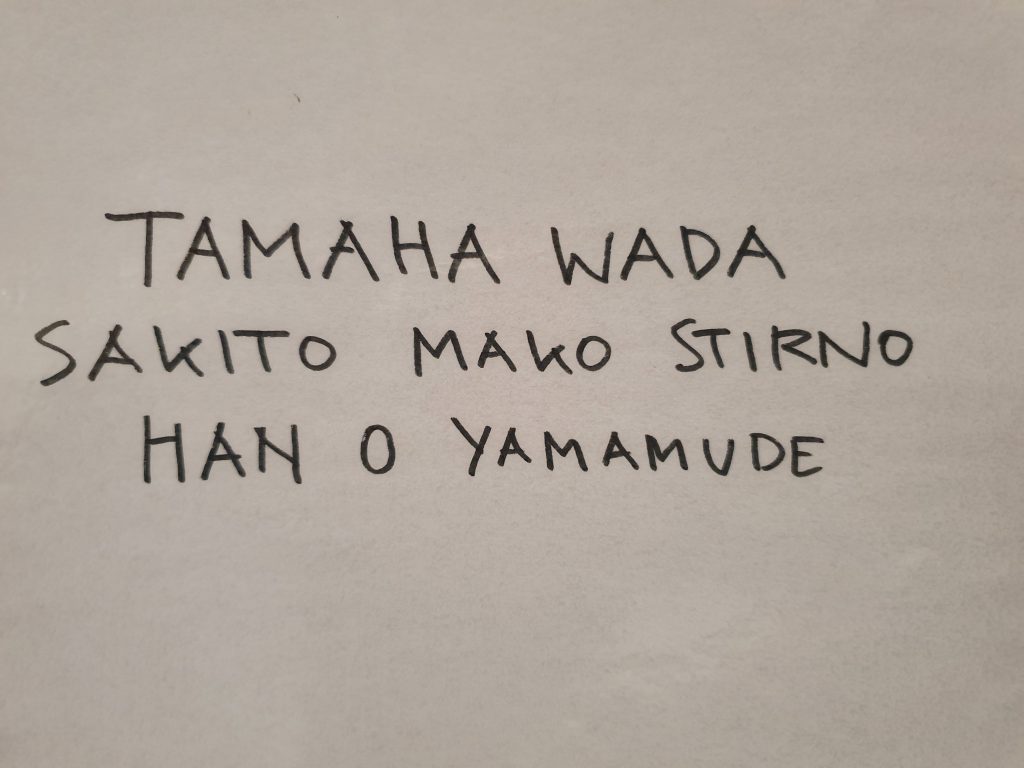 TAMAHA WADA
SAKITO MAKO STIRNO
HAN O YAMAMUDE